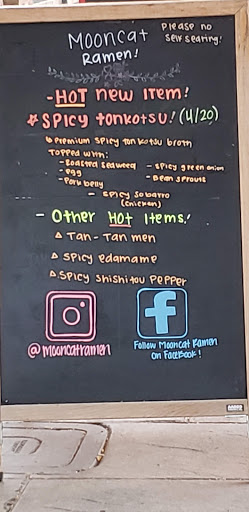 Please no
self seating!
Mooncat
Ramen!
- HOT new Item!
* SPICY TONKOTSU! (4/20)
Premium Spicy Tonkotsu broth
Topped with:
- Roasted seaweed - Spicy green onion
- Egg - Bean sprouts
- Pork belly
- Spicy Soboro
(chicken)
- Other HOT Items!
△ Tan-Tan men
△ Spicy edamame
△ Spicy Shishitou Pepper
@mooncatramen
f
Follow Mooncat Ramen
On Facebook!